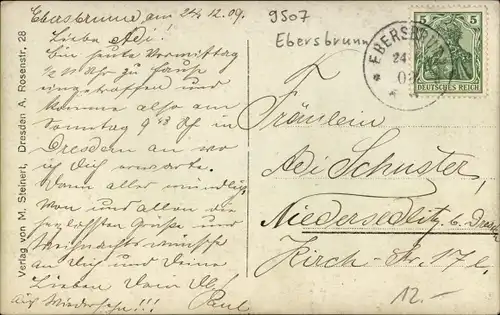 Ebersbrunn am 24/12.09.
Liebe Adi!
Bin heute Vormittag
½11 Uhr zu Hause
eingetroffen und
komme also am
Sonntag 9 43 Uh in
Dresden an wo
ich Dich erwarte.
Dann alles mündlich
Von uns allen die
herzlichsten Grüße und
Weihnachtswünsche
an Dich und Deine
Lieben Dein
Auf Wiedersehn!!! Paul
Verlag von M. Steinert, Dresden A. Rosenstr. 28
9507
Ebersbrunn
EBERSBRUNN
24
5 5
DEUTSCHES REICH
Fräulein
Adi Schuster,
Niedersedlitz b. Dresden
Kirch-Str. 17 I.
12.-